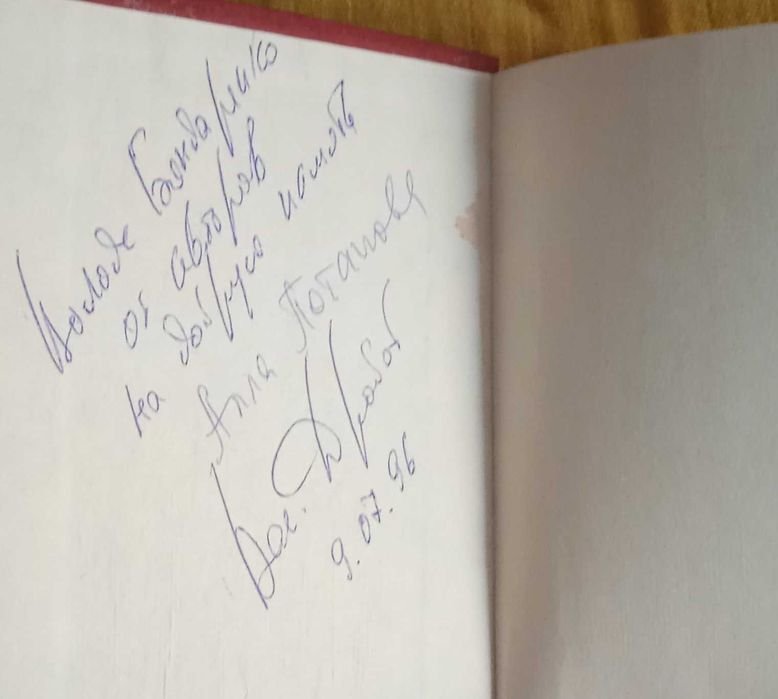 Володе Бондаренко
от авторов
на добрую память
Алла Поташова
9.07.96